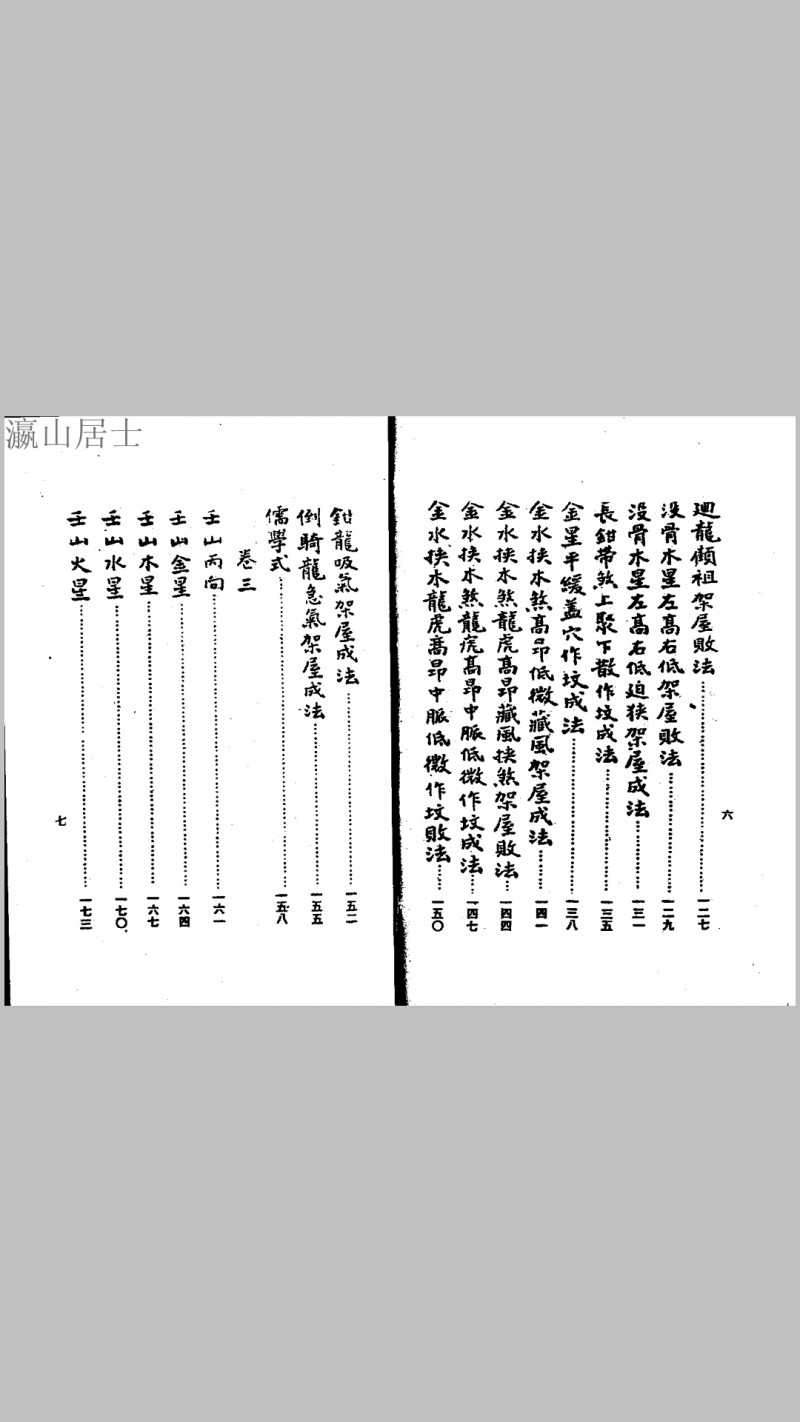 瀛山居士
廻龍顧祖架屋敗法……一二七
没骨木星左高右低架屋敗法……一二九
没骨木星左高右低迫狹架屋成法……一三一
長鉗帶煞上聚下散作坟成法……一三五
金星平緩蓋穴作坟成法……一三八
金水挟木煞高昂低微藏風架屋成法……一四一
金水挟木煞龍虎高昂藏風挟煞架屋敗法……一四四
金水挟木煞龍虎高昂中脈低微作坟成法……一四七
金水挟木龍虎高昂中脈低微作坟敗法……一五〇
六
鉗龍吸氣架屋成法……一五二
倒騎龍急氣架屋成法……一五五
儒學式……一五八
卷三
壬山丙向……一六一
壬山金星……一六四
壬山木星……一六七
壬山水星……一七〇
壬山火星……一七三
七